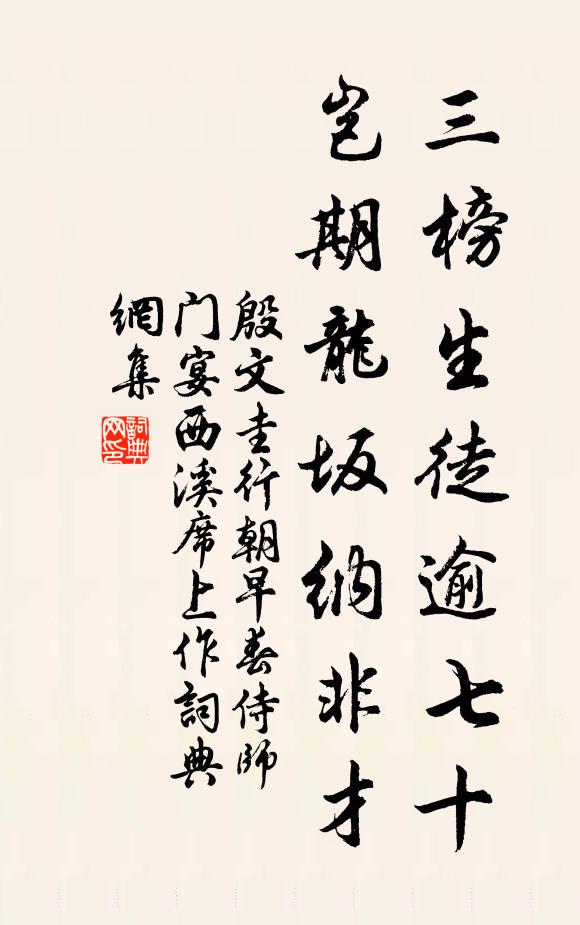 三榜生徒逾七十
岂期龍坂納非才
殷文圭行朝早春侍師
门宴西溪席上作詞典
網集
詞典網印